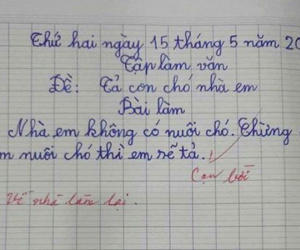 Thứ hai ngày 15 tháng 5 năm 20
Tập làm văn
Đề: Tả con chó nhà em
Bài làm
Nhà em không có nuôi chó. Chừng
m nuôi chó thì em sẽ tả.
Cạn lời
Về nhà làm lại.